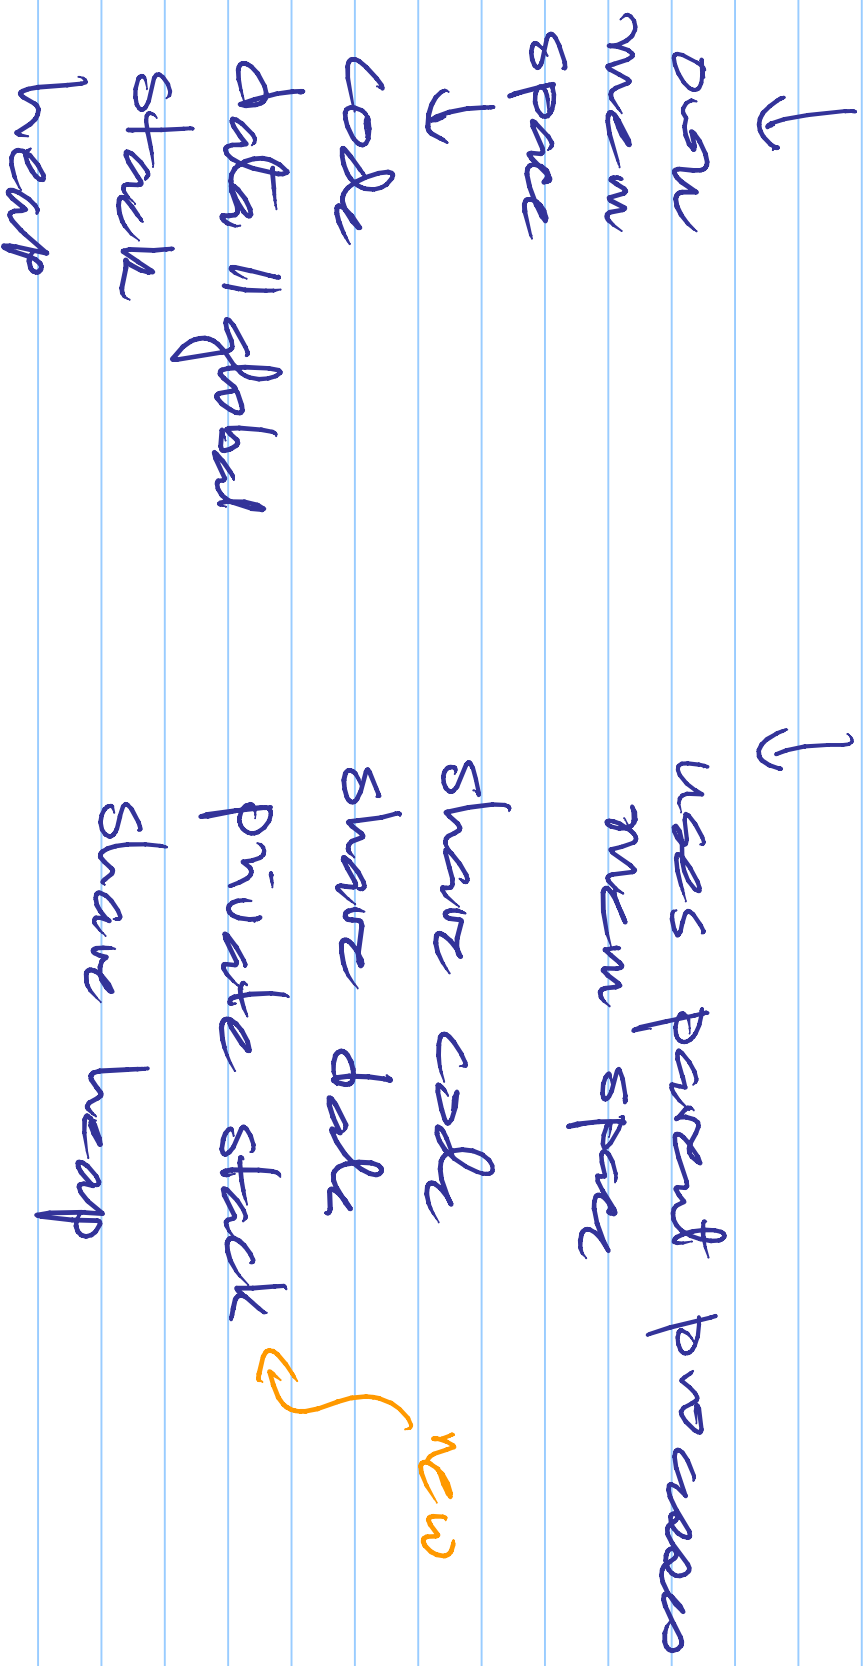 ↓
own
mem
space
↓
code
data || global
stack
heap
↓
uses parent process
mem space
share code
share data
private stack
new
share heap